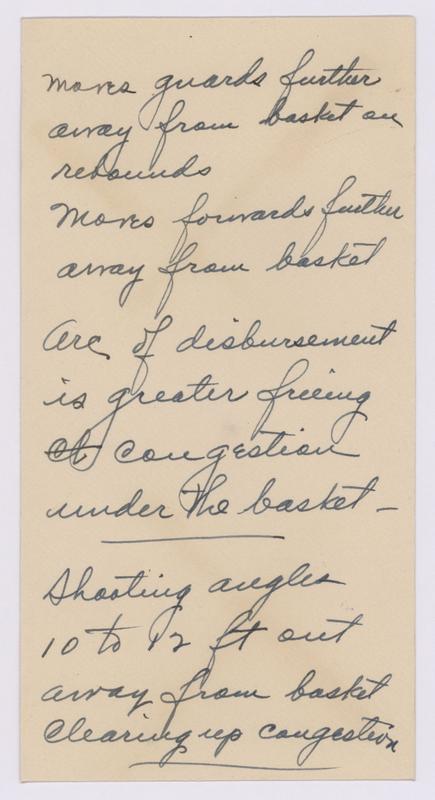 moves guards further
away from basket on
rebounds
Moves forwards further
away from basket
Arc of disbursement
is greater freeing
congestion
under the basket -
Shooting angles
10 to 12 ft out
away from basket
Clearing up congestion